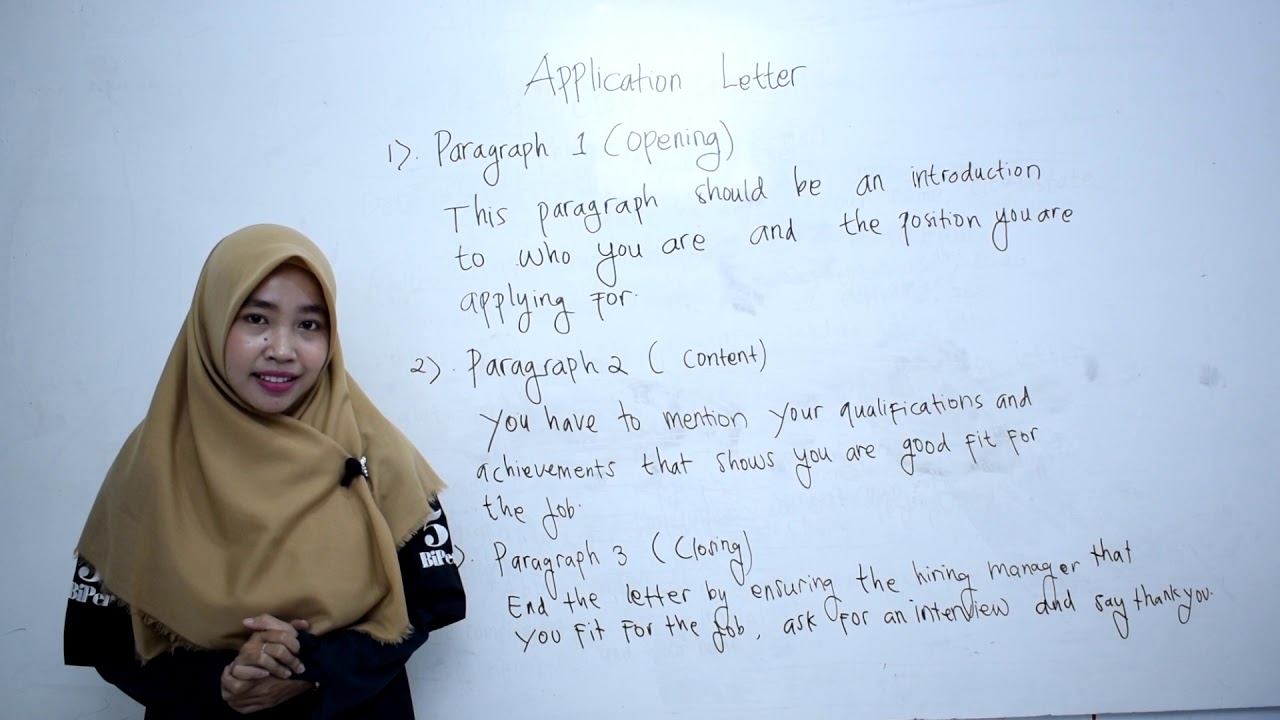 Application Letter
1). Paragraph 1 (opening)
This paragraph should be an introduction
to who you are and the position you are
applying for.
2). Paragraph 2 ( content)
You have to mention your qualifications and
achievements that shows you are good fit for
the job.
). Paragraph 3 (Closing)
End the letter by ensuring the hiring manager that
you fit for the job, ask for an interview and say thank you.
5
BiPer
5
BiPe